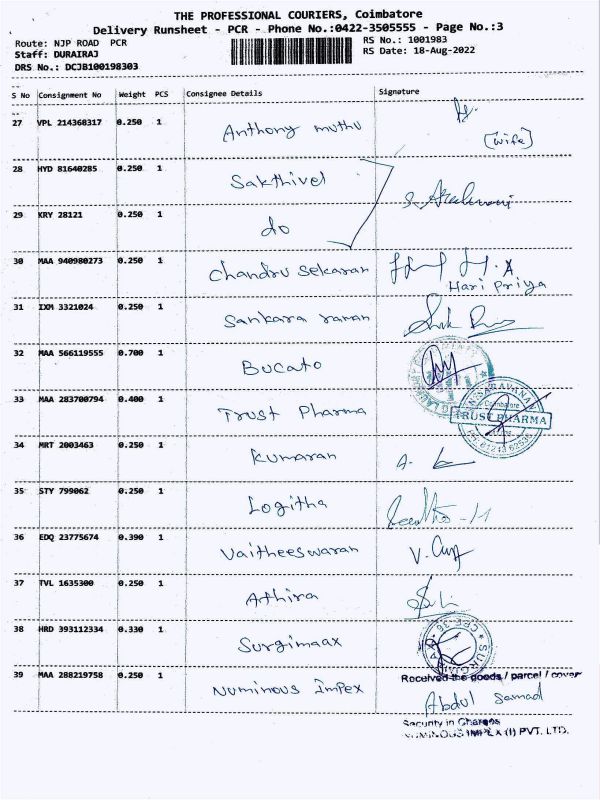 THE PROFESSIONAL COURIERS, Coimbatore
Delivery Runsheet - PCR - Phone No.:0422-3505555 - Page No.:3
Route: NJP ROAD PCR
RS No.: 1001983
Staff: DURAIRAJ
RS Date: 18-Aug-2022
DRS No.: DCJB100198303
S No Consignment No Weight PCS Consignee Details Signature
27 VPL 214368317 0.250 1 Anthony muthu
(wife)
28 HYD 81640285 0.250 1 Sakthivel
29 KRY 28121 0.250 1 do
30 MAA 940980273 0.250 1 Chandru sekaran
Hari Priya
31 IXM 3321024 0.250 1 Sankara raman
32 MAA 566119555 0.700 1 Bucato
33 MAA 283700794 0.400 1 Trust Pharma
SARAVANA
Coimbatore
TRUST PHARMA
34 MRT 2003463 0.250 1 Kumaran
35 STY 799062 0.250 1 Logitha
36 EDQ 23775674 0.390 1 Vaitheeswaran
37 TVL 1635300 0.250 1 Athira
38 HRD 393112334 0.330 1 Surgimaax
39 MAA 288219758 0.250 1 Numinous Impex
Received the goods / parcel / cover
Abdul Samad
Security in Charge
NUMINOUS IMPEX (I) PVT. LTD.